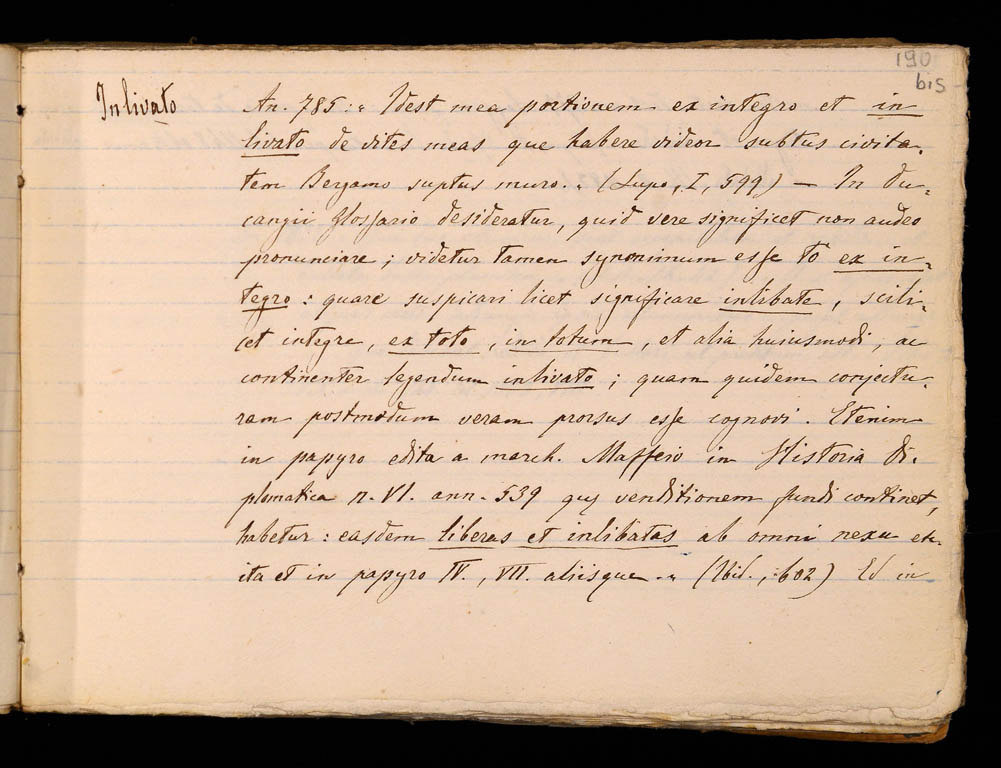 190
bis
Inlivato
An. 785: „ Idest mea portionem ex integro et in
livato de vites meas que habere videor subtus civita-
tem Bergamo suptus muro. „ (Lupo, I, 599) — In Du-
cangii Glossario desideratur, quid vere significet non audeo
pronunciare; videtur tamen synonimum esse to ex in-
tegro: quare suspicari licet significare inlibate, scili-
cet integre, ex toto, in totum, et alia huiusmodi, ac
continenter legendum inlivato; quam quidem conjectu-
ram postmodum veram prorsus esse cognovi. Etenim
in papyro edita a march. Maffeio in Historia di-
plomatica n. VI. ann. 539 quę venditionem fundi continet,
habetur: easdem liberas et inlibatas ab omni nexu etc.
ita et in papyro IV., VII. aliisque. „ (Ibid., 602) Ed in